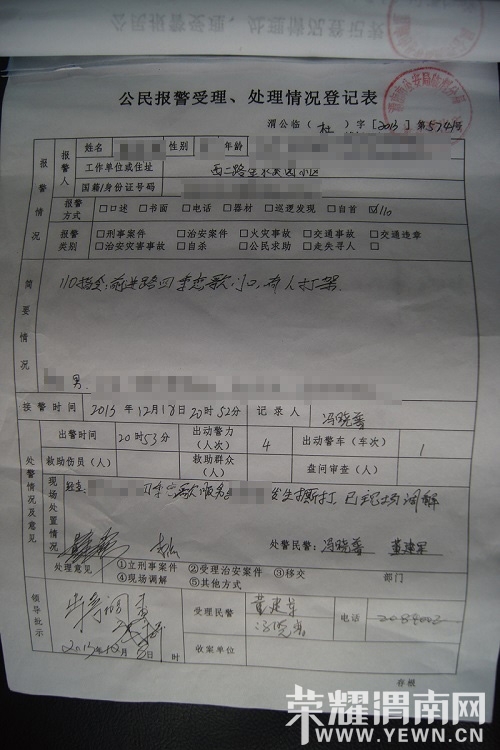 公民报警受理、处理情况登记表
公民报警受理、处理情况登记表
渭公临（杜）字［2013］第5743号
报警情况
报警人
姓名 性别 年龄
工作单位或住址 西二路
国籍/身份证号码
报警方式 □口述 □书面 □电话 □器材 □巡逻发现 □自首 ☑110
报警类别 □刑事案件 □治安案件 □火灾事故 □交通事故 □交通违章
□治安灾害事故 □自杀 □公民求助 □走失寻人 □
简要情况
110指令:前进路四季恋歌门口,有人打架
男.
接警时间 2013年12月18日20时52分 记录人 冯晓
处警情况及意见
出警时间 20时53分 出动警力（人次） 4 出动警车（车次） 1
救助伤员（人） 救助群众（人） 盘问审查（人）
现场处置情况
四季恋歌服务 发生撕打,已现场调解
处警民警: 冯晓 董建军
处理意见 ①立刑事案件 ②受理治安案件 ③移交 部门
④现场调解 ⑤其他方式
领导批示
2013年12月18日 时
受理民警 董建军
冯晓
电话 2088002
收案单位
存根
荣耀渭南网
WWW.YEWN.CN